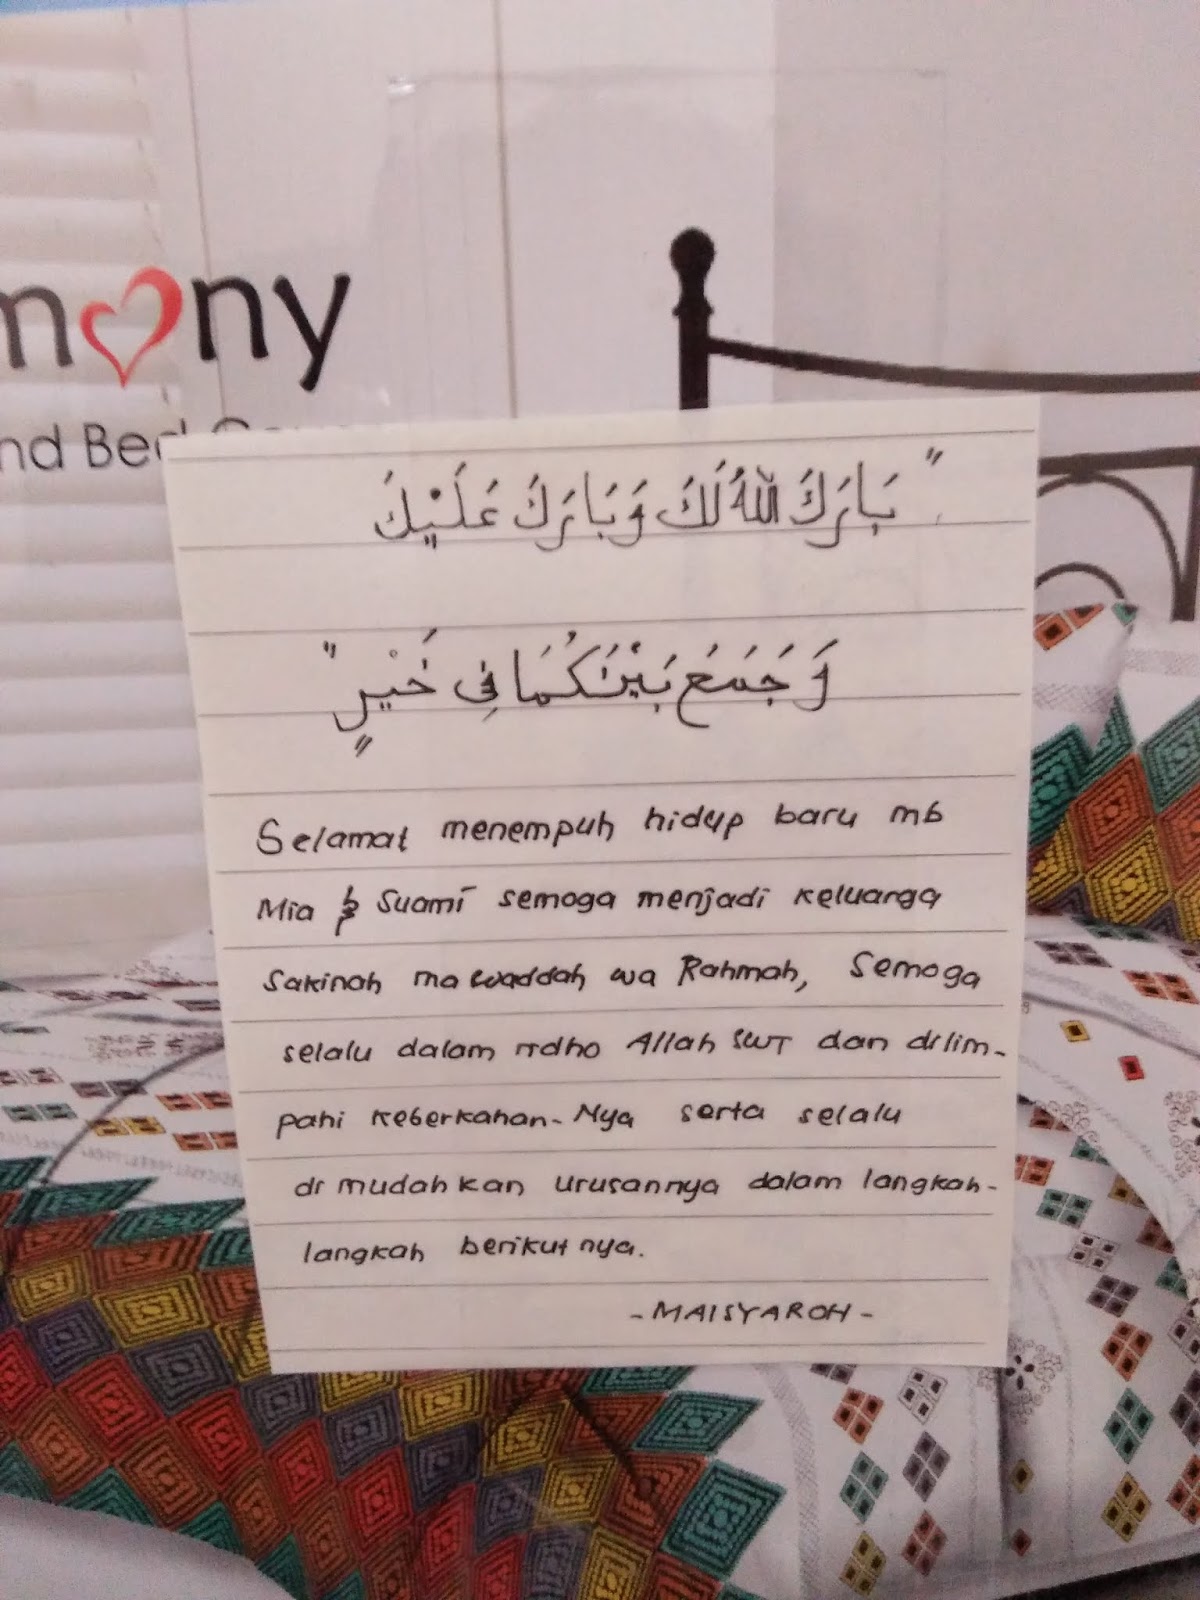 mony
nd Bed
"بَارَكَ اللّٰهُ لَكَ وَبَارَكَ عَلَيْكَ
وَجَمَعَ بَيْنَكُمَا فِي خَيْرٍ"
Selamat menempuh hidup baru mb
Mia & Suami semoga menjadi keluarga
Sakinah mawaddah wa Rahmah, Semoga
selalu dalam ridho Allah SWT dan dilim-
pahi keberkahan-Nya serta selalu
di mudahkan urusannya dalam langkah-
langkah berikutnya.
-MAISYAROH-